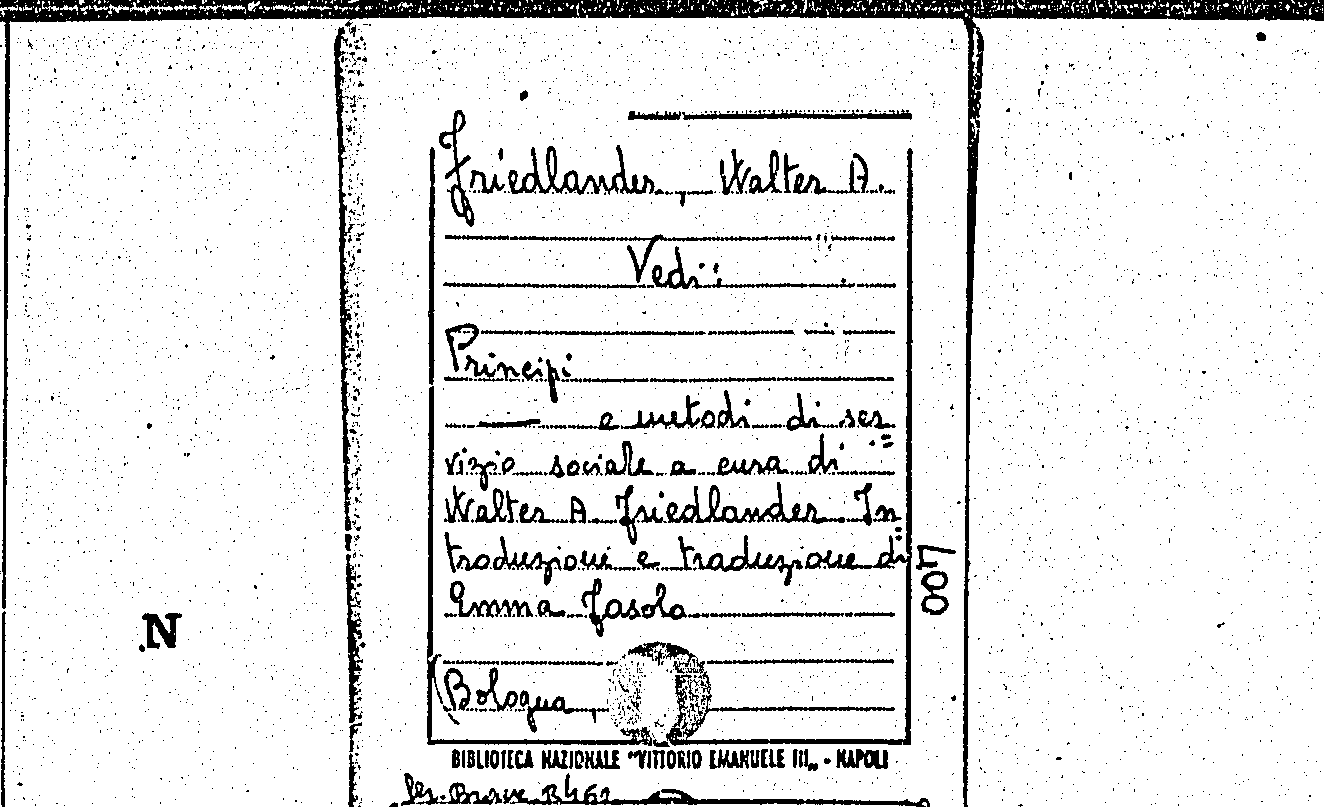 Friedlander, Walter A.
Vedi:
Principi
— e metodi di ser=
vizio sociale a cura di
Walter A. Friedlander. In=
troduzione e traduzione di
Emma Fasolo
(Bologna,
BIBLIOTECA NAZIONALE "VITTORIO EMANUELE III„ - NAPOLI
007
N